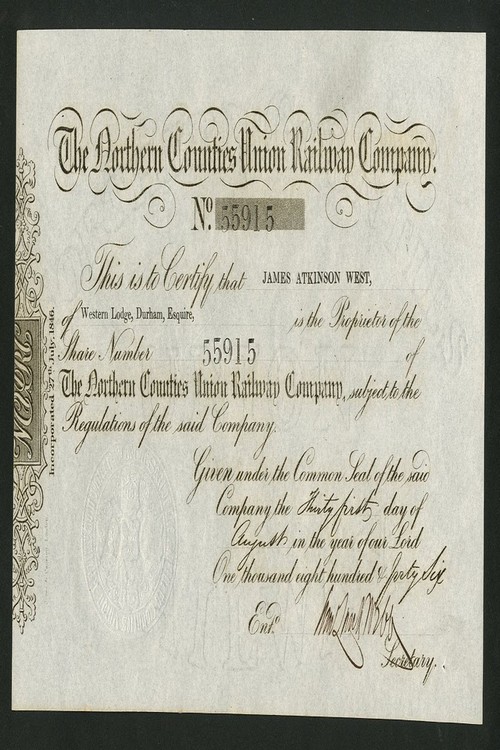 The Northern Counties Union Railway Company.
No. 55915
This is to Certify that JAMES ATKINSON WEST,
of Western Lodge, Durham, Esquire, is the Proprietor of the
Share Number 55915 of
The Northern Counties Union Railway Company, subject to the
Regulations of the said Company.
Given under the Common Seal of the said
Company the Thirty first day of
August in the year of our Lord
One thousand eight hundred & forty Six
Entd.
Secretary.
Incorporated 27th July, 1846.